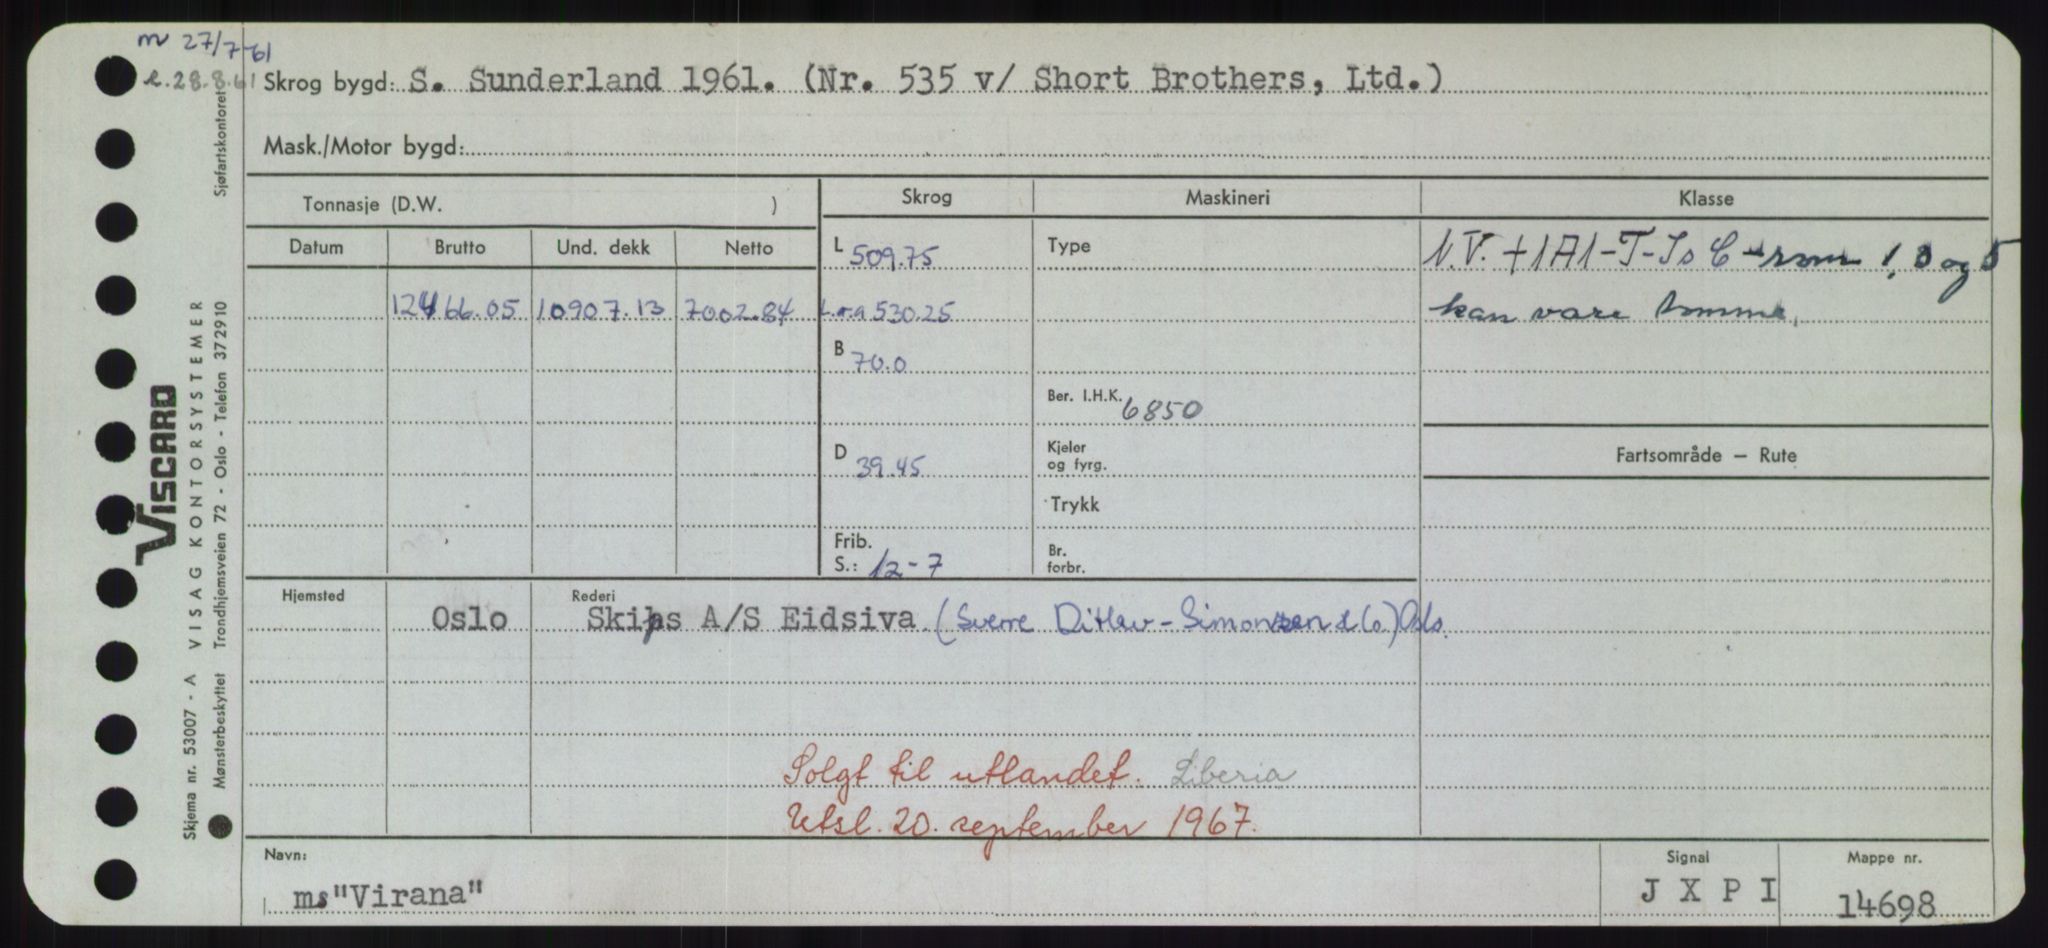 m 27/7-61
e. 28.8.61
Skrog bygd: S. Sunderland 1961. (Nr. 535 v/ Short Brothers, Ltd.)
Mask./Motor bygd:
Tonnasje (D.W. )
Skrog
Maskineri
Klasse
Datum Brutto Und. dekk Netto
L 509.75
Type
N.V. +1A1-T-Is C - rom 1, 3 og 5
12466.05 10907.13 7002.84
L.o.a 530.25
kan være tomme.
B 70.0
Ber. I.H.K. 6850
D 39.45
Kjeler
og fyrg.
Fartsområde – Rute
Trykk
Frib.
S.: 12-7
Br.
forbr.
Hjemsted
Rederi
Oslo Skips A/S Eidsiva (Sverre Ditlev-Simonsen & Co.) Oslo.
Solgt til utlandet. Liberia
Utsl. 20. september 1967.
Navn:
ms "Virana"
Signal
J X P I
Mappe nr.
14698
VISCARD
Skjema nr. 53007 - A VISAG KONTORSYSTEMER
Mønsterbeskyttet Trondhjemsveien 72 - Oslo - Telefon 372910
Sjøfartskontoret